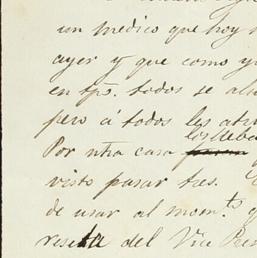 un medico que hoy
ayer y que como y
en tps. todos se
pero á todos les
les lleba
Por ntra casa
visto pasar tres.
de usar al mom.to q
reseta del Vice Pres